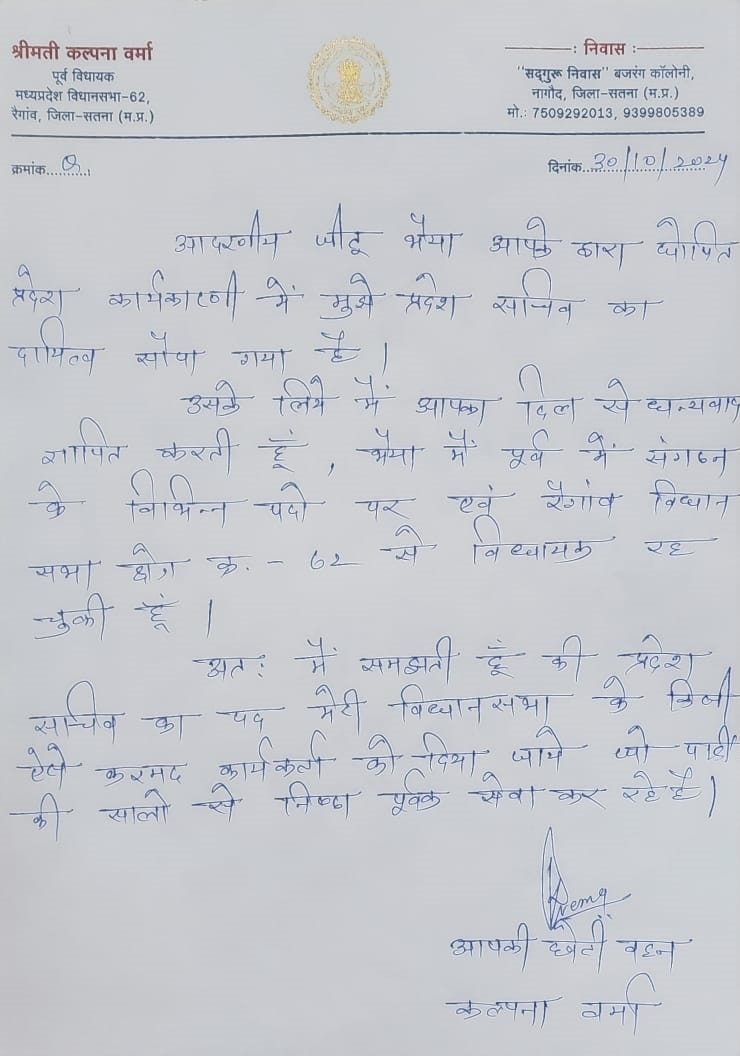 श्रीमती कल्पना वर्मा
पूर्व विधायक
मध्यप्रदेश विधानसभा-62,
रैगांव, जिला-सतना (म.प्र.)
: निवास :
"सद्गुरू निवास" बजरंग कॉलोनी,
नागौद, जिला-सतना (म.प्र.)
मो.: 7509292013, 9399805389
क्रमांक.......
दिनांक...30/10/2024
आदरणीय जीटू भैया आपके द्वारा घोषित
प्रदेश कार्यकारणी में मुझे प्रदेश सचिव का
दायित्व सौपा गया है।
उसके लिये मैं आपका दिल से धन्यवाद
ज्ञापित करती हूँ , भैया मैं पूर्व में संगठन
के विभिन्न पदो पर एवं रैगांव विधान
सभा क्षेत्र क्र. - 62 से विधायक रह
चुकी हूँ।
अत: मैं समझती हूँ की प्रदेश
सचिव का पद मेरी विधानसभा के किसी
ऐसे करमठ कार्यकर्ता को दिया जाये जो पार्टी
की सालो से निष्ठा पूर्वक सेवा कर रहे है।
आपकी छोटी बहन
कल्पना वर्मा